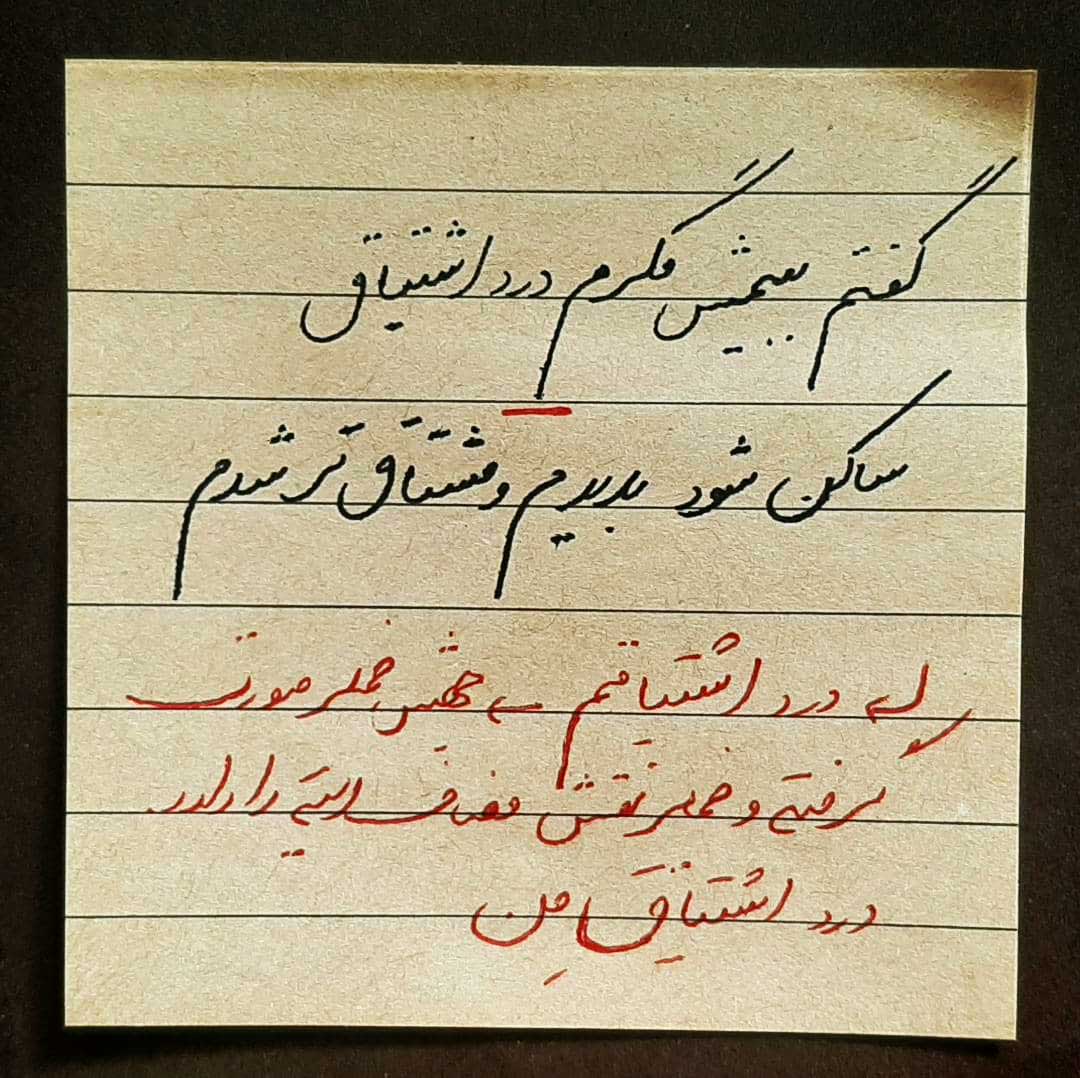 گفتم ببینمش مگرم درد اشتیاق
ساکن شود بدیدم و مشتاق تر شدم
درد اشتیاقم ← جهش ضمیر صورت
گرفته و ضمیر نقش مضاف الیه را دارد.
درد اشتیاقِ من